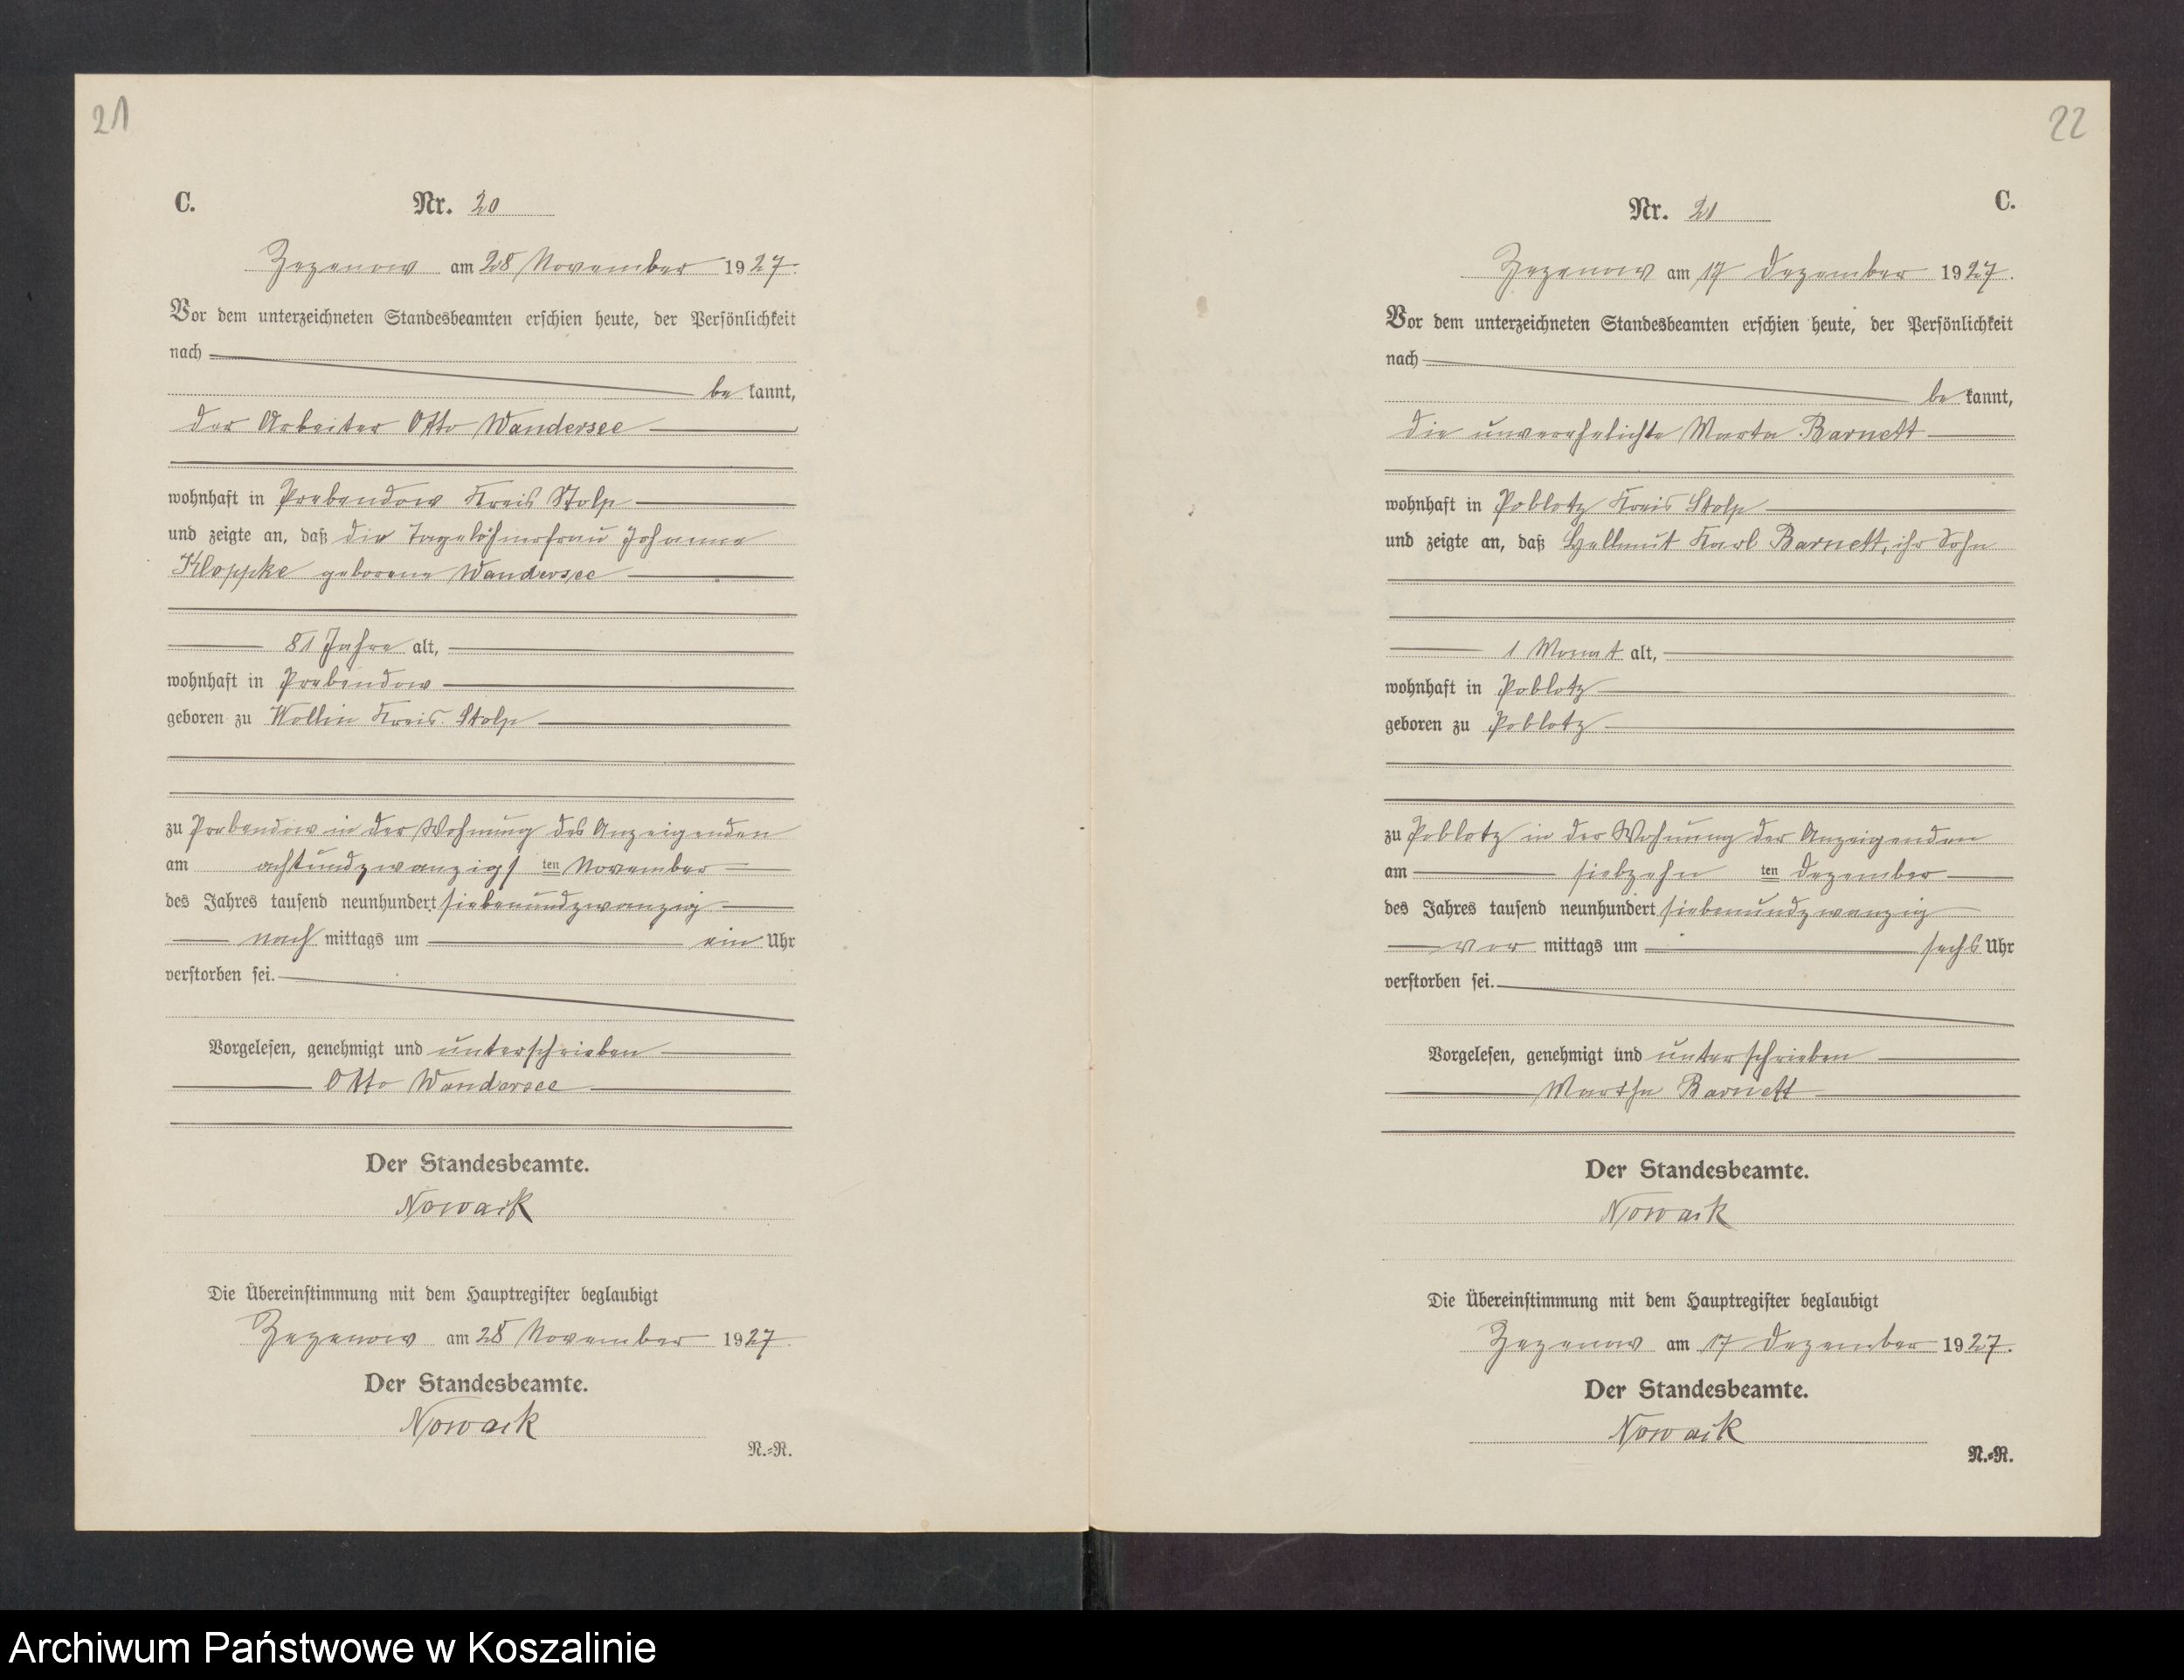 21
C.
Nr. 20
Zezenow am 28 November 1927.
Vor dem unterzeichneten Standesbeamten erschien heute, der Persönlichkeit
nach
be kannt,
der Arbeiter Otto Wandersee
wohnhaft in Prebendow Kreis Stolp
und zeigte an, daß die Tagelöhnerfrau Johanne
Kloppke geborene Wandersee
81 Jahre alt,
wohnhaft in Prebendow
geboren zu Wollin Kreis Stolp
zu Prebendow in der Wohnung des Anzeigenden
am achtundzwanzigs ten November
des Jahres tausend neunhundert siebenundzwanzig
nach mittags um ein Uhr
verstorben sei.
Vorgelesen, genehmigt und unterschrieben
Otto Wandersee
Der Standesbeamte.
Nowack
Die Übereinstimmung mit dem Hauptregister beglaubigt
Zezenow am 28 November 1927.
Der Standesbeamte.
Nowack
N.-R.
22
Nr. 21
C.
Zezenow am 17 Dezember 1927.
Vor dem unterzeichneten Standesbeamten erschien heute, der Persönlichkeit
nach
be kannt,
die unverehelichte Marta Barnett
wohnhaft in Poblotz Kreis Stolp
und zeigte an, daß Hellmut Karl Barnett, ihr Sohn
1 Monat alt,
wohnhaft in Poblotz
geboren zu Poblotz
zu Poblotz in der Wohnung der Anzeigenden
am siebzehn ten Dezember
des Jahres tausend neunhundert siebenundzwanzig
vor mittags um sechs Uhr
verstorben sei.
Vorgelesen, genehmigt und unterschrieben
Martha Barnett
Der Standesbeamte.
Nowack
Die Übereinstimmung mit dem Hauptregister beglaubigt
Zezenow am 17 Dezember 1927.
Der Standesbeamte.
Nowack
N.-R.
Archiwum Państwowe w Koszalinie